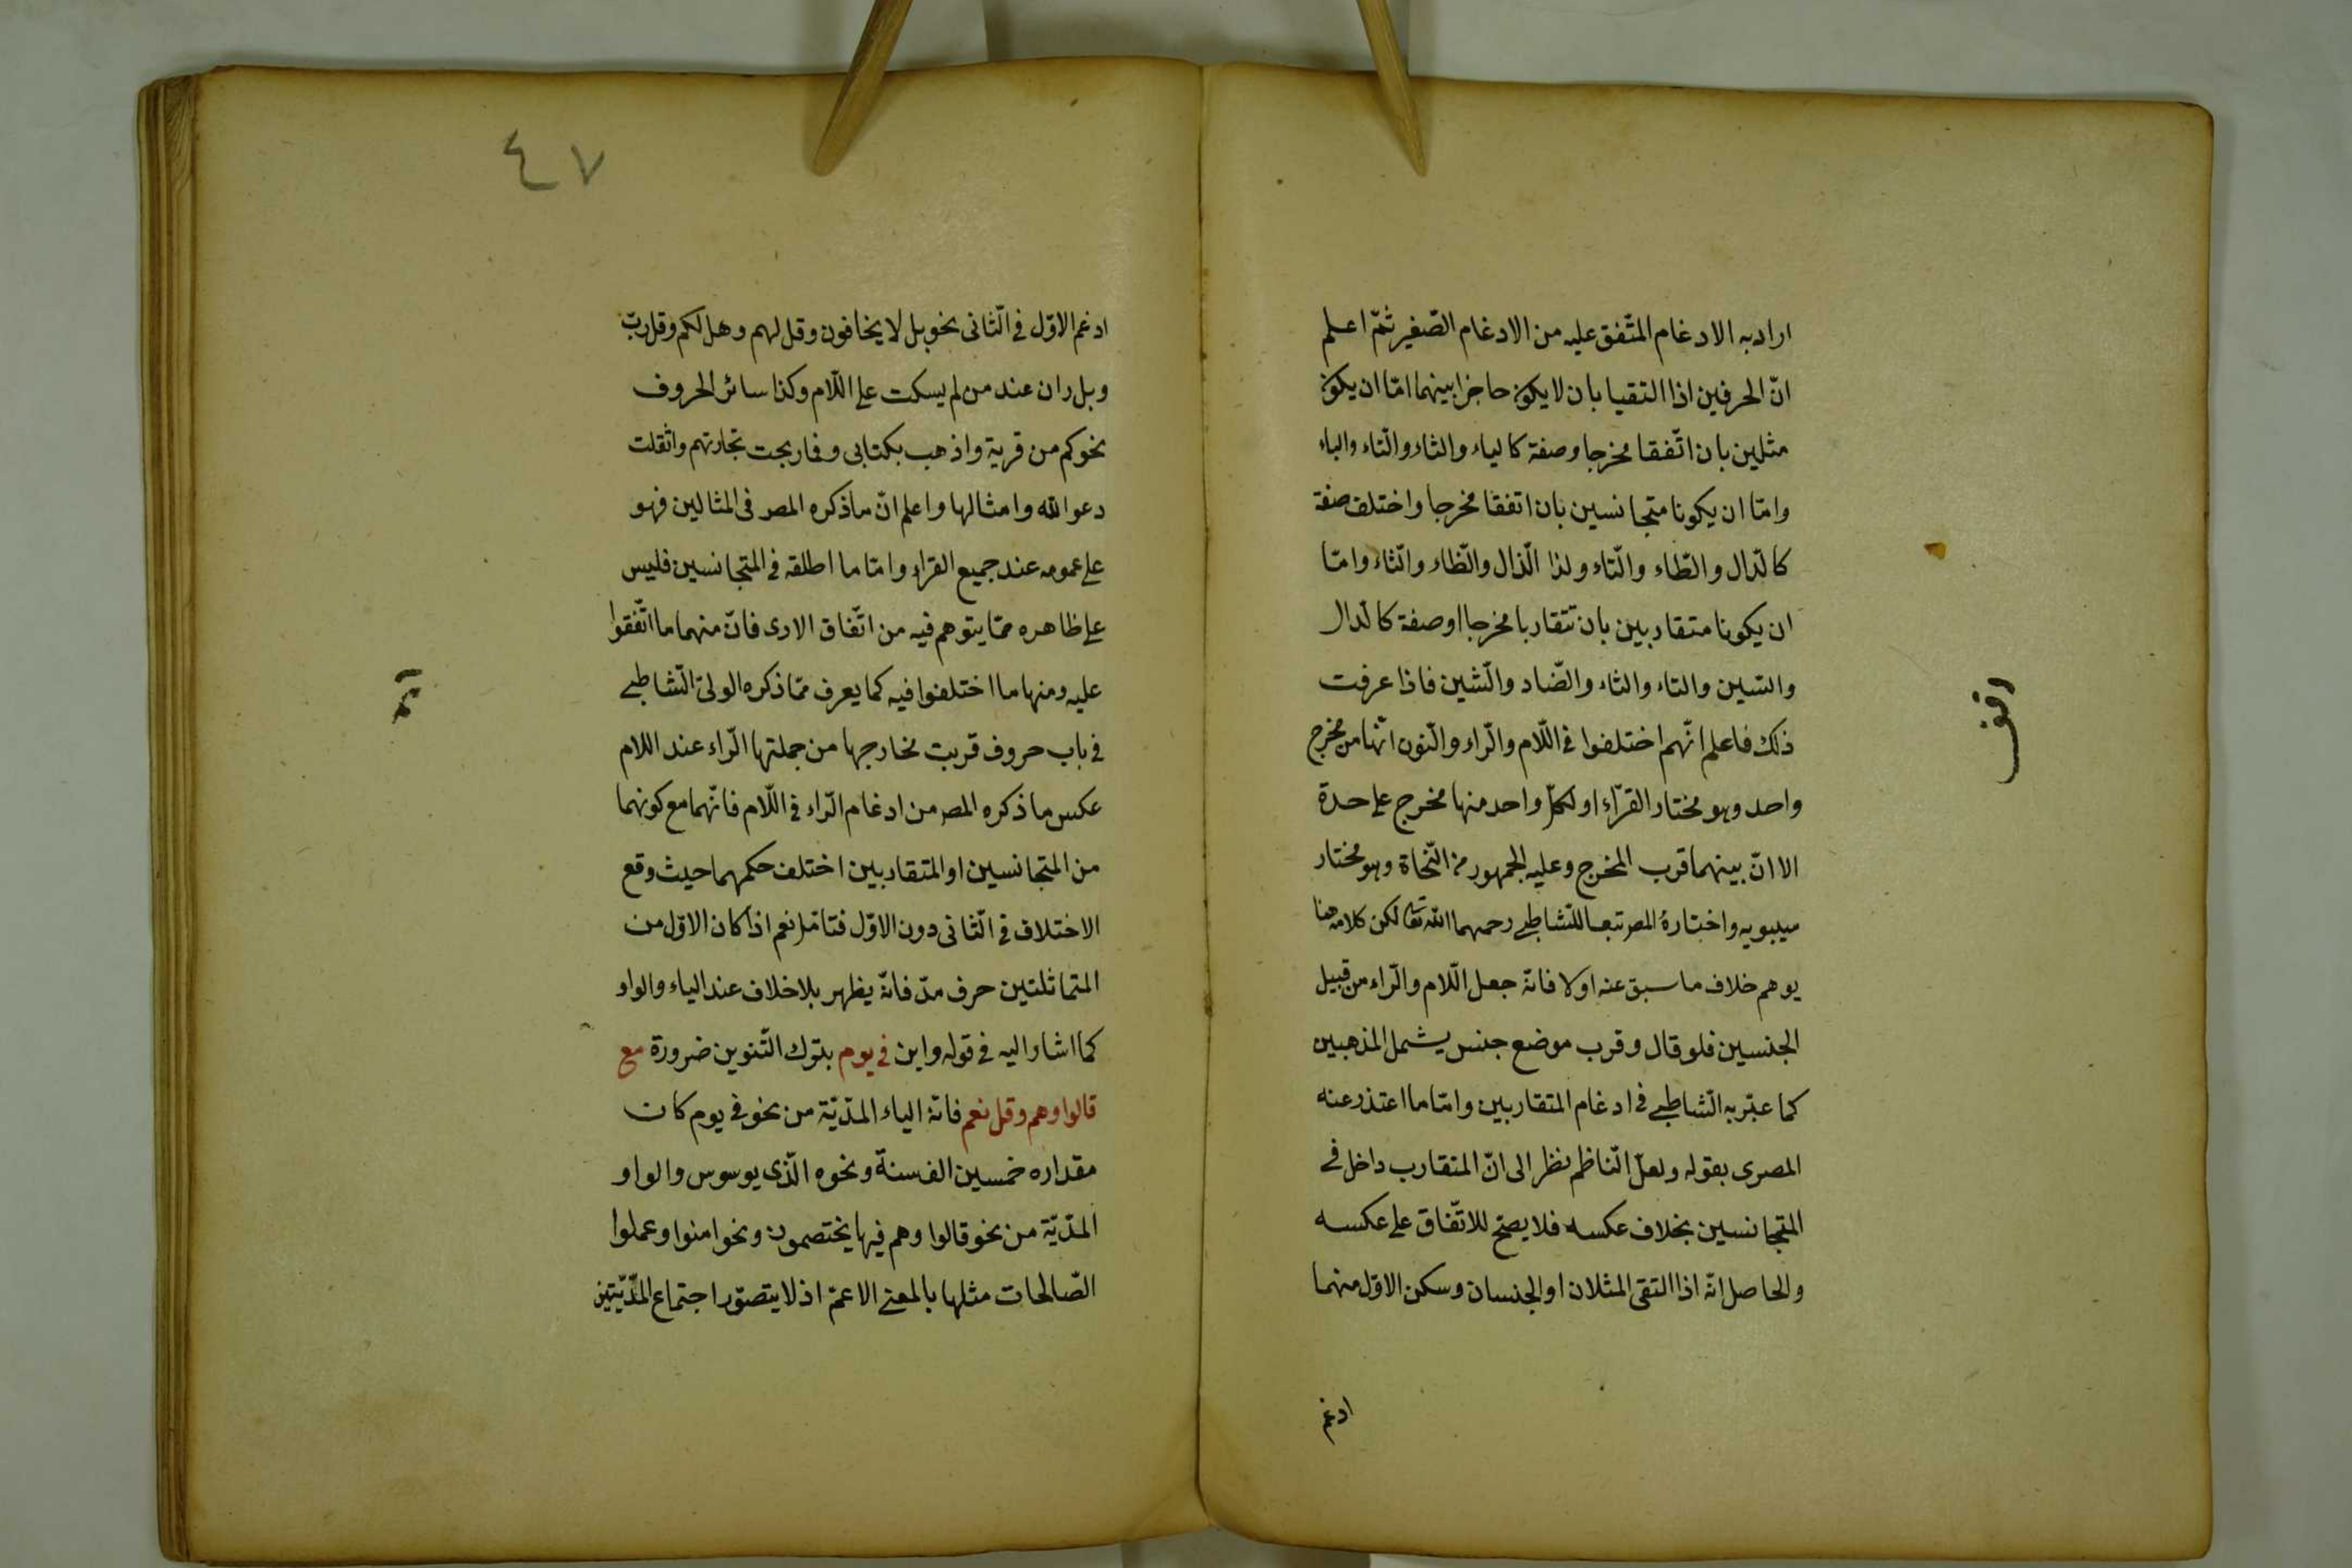 اراد به الادغام المتّفق عليه من الادغام الصّغير ثمّ اعلم
انّ الحرفين اذا التقيا بان لا يكون حاجزا بينهما امّا ان يكون
مثلين بان اتّفقا مخرجا وصفة كالياء والثاء والتّاء والباء
وامّا ان يكونا متجانسين بان اتفقا مخرجا واختلف صفة
كالدّال والطّاء والتّاء ولذا الذّال والظّاء والثّاء وامّا
ان يكونا متقاربين بان تتقاربا مخرجا او صفة كالدّال
والسّين والتاء والثاء والضّاد والشّين فاذا عرفت
ذلك فاعلم انّهم اختلفوا في اللّام والرّاء والنّون انّها من مخرج
واحد وهو مختار القرّاء او لكلّ واحد منها مخرج على حدة
الا انّ بينهما قرب المخرج وعليه الجمهور من النّحاة وهو مختار
سيبويه واختارهُ المصر تبعا للشّاطبي رحمهما الله تعا لكن كلامه هنا
يوهم خلاف ما سبق عنه اولا فانّه جعل اللّام والرّاء من قبيل
الجنسين فلو قال وقرب موضع جنس يشمل المذهبين
كما عبّر به الشّاطبي في ادغام المتقاربين وامّا ما اعتذر عنه
المصرى بقوله ولعلّ النّاظم نظر الى انّ المتقارب داخل في
المتجانسين بخلاف عكسه فلا يصحّ للاتّفاق على عكسه
والحاصل انّه اذا التقى المثلان او الجنسان وسكن الاوّل منهما
ادغم
وقف
٤٧
ادغم الاوّل في الثّانى نحو بل لا يخافون وقل لهم وهل لكم وقل ربّ
وبل ران عند من لم يسكت على اللّام وكذا سائر الحروف
نحو كم من قرية واذهب بكتابى وفما ربحت تجارتهم واثقلت
دعوا الله وامثالها واعلم انّ ما ذكره المصر فى المثالين فهو
على عمومه عند جميع القراء وامّا ما اطلقه في المتجانسين فليس
على ظاهره ممّا يتوهم فيه من اتّفاق الارى فانّ منهما ما اتّفقوا
عليه ومنها ما اختلفوا فيه كما يعرف ممّا ذكره الولىّ الشّاطبي
في باب حروف قربت مخارجها من جملتها الرّاء عند اللام
عكس ما ذكره المصر من ادغام الرّاء في اللّام فانّهما مع كونهما
من المتجانسين او المتقاربين اختلف حكمهما حيث وقع
الاختلاف في الثّانى دون الاوّل فتامّل نعم اذا كان الاوّل من
المتماثلتين حرف مدّ فانّه يظهر بلا خلاف عند الياء والواو
كما اشار اليه في قوله وابن في يوم بترك التّنوين ضرورة مع
قالوا وهم وقل نعم فانّه الياء المدّيّة من نحو في يوم كان
مقداره خمسين الف سنة ونحوه الّذى يوسوس والواو
المدّيّة من نحو قالوا وهم فيها يختصمون ونحو امنوا وعملوا
الصّالحات مثلها بالمعنى الاعمّ اذ لا يتصوّر اجتماع المدّيّتين